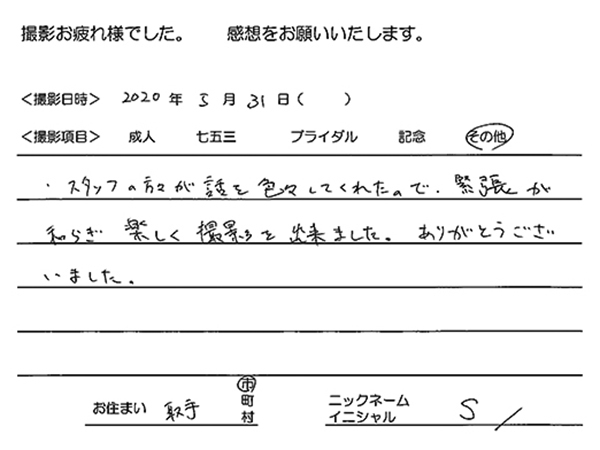 撮影お疲れ様でした。　感想をお願いいたします。
＜撮影日時＞ 2020 年 5 月 31 日（　　）
＜撮影項目＞ 成人 七五三 ブライダル 記念 その他
・スタッフの方々が話を色々してくれたので、緊張が
和らぎ 楽しく 撮影を出来ました。ありがとうござ
いました。
お住まい 取手 市 町 村
ニックネーム
イニシャル S /